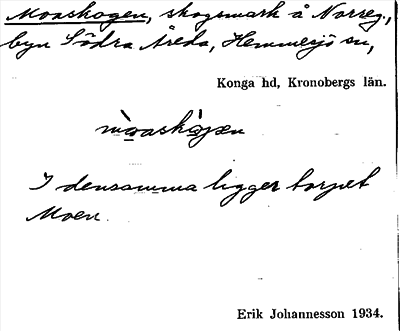 Moaskogen, skogsmark å Norreg.,
byn Södra Åreda, Hemmesjö sn,
Konga hd, Kronobergs län.
I densamma ligger torpet
Moen.
Erik Johannesson 1934.